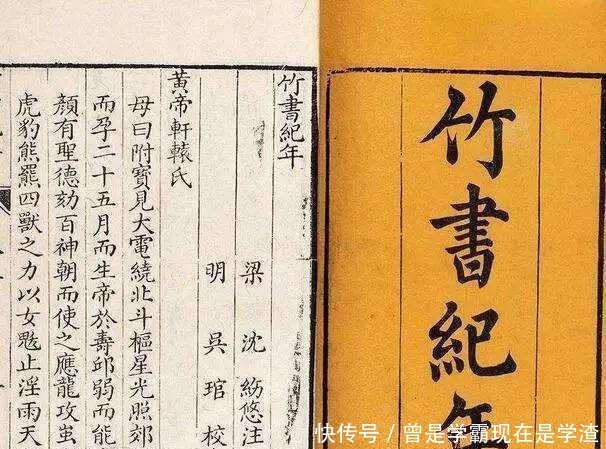 竹書紀年
竹書紀年
梁沈約悠注
明吳琯校
黃帝軒轅氏
母曰附寶見大電繞北斗樞星光照郊
而孕二十五月而生帝於壽邱弱而能
顏有聖德劾百神朝而使之應龍攻蚩
虎豹熊羆四獸之力以女魃止淫雨天
快传号/曾是学霸现在是学渣